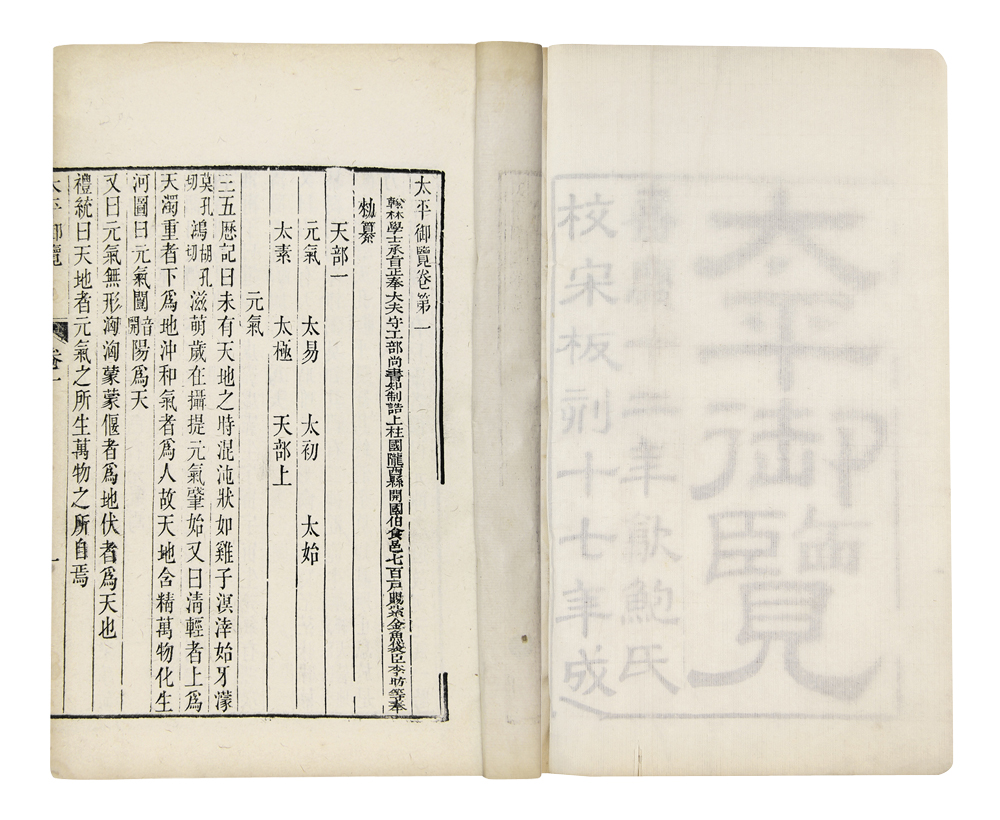 太平御覽
嘉慶十二年歙鮑氏
校宋板刻十七年成
太平御覽卷第一
翰林學士承旨正奉大夫守工部尚書知制誥上柱國隴西縣開國伯食邑七百戶賜紫金魚袋臣李昉等奉
勑纂
天部一
元氣 太易 太初 太始
太素 太極 天部上
元氣
三五歷記曰未有天地之時混沌狀如雞子溟涬始牙濛
莫孔切鴻胡孔切滋萌歲在攝提元氣肇始又曰清輕者上爲
天濁重者下爲地沖和氣者爲人故天地含精萬物化生
河圖曰元氣闓音開陽爲天
又曰元氣無形洶洶蒙蒙偃者爲地伏者爲天也
禮統曰天地者元氣之所生萬物之所自焉
太平御覽 卷一 一